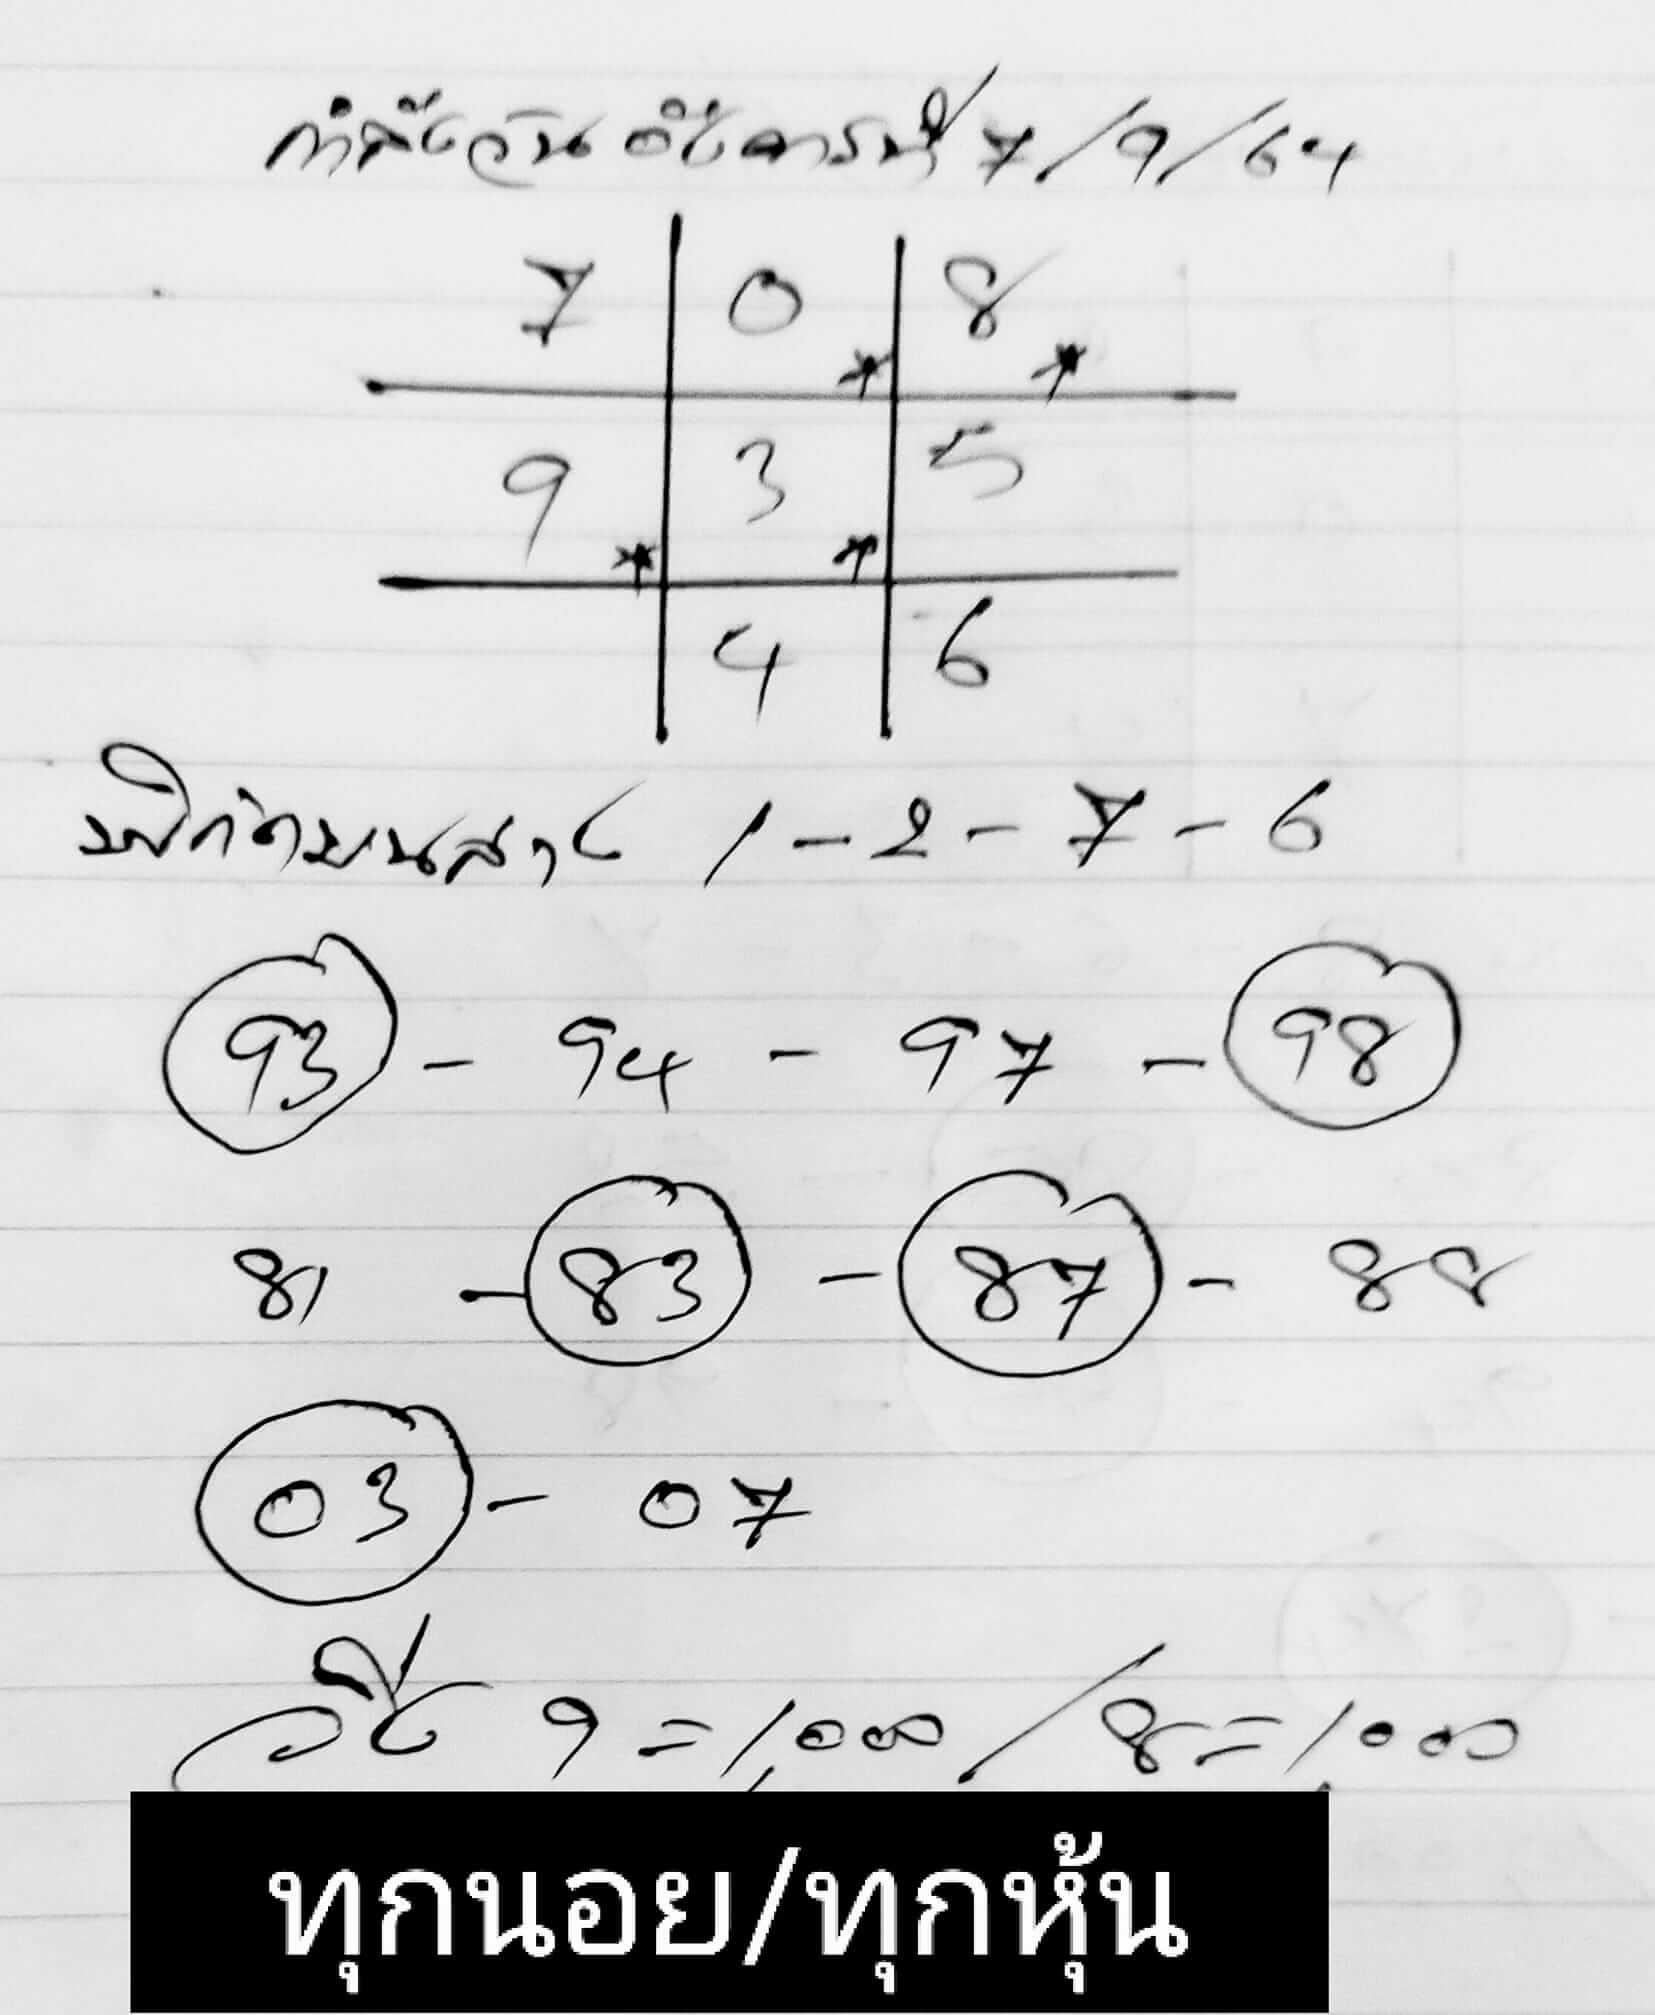 กำลังวันอังคารที่ 7/9/64
7 0 8
9 3 5
4 6
1-2-7-6
93 - 94 - 97 - 98
81 - 83 - 87 - 88
03 - 07
วิ่ง 9=1,000/8=1,000
ทุกนอย/ทุกหุ้น